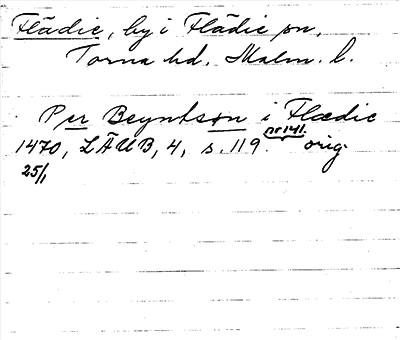 Flädie, by i Flädie sn,
Torna hd. Malm. l.
Per Beyntson i Flædie
nr 141.
1470, LÄUB, 4, s. 119. orig.
25/1